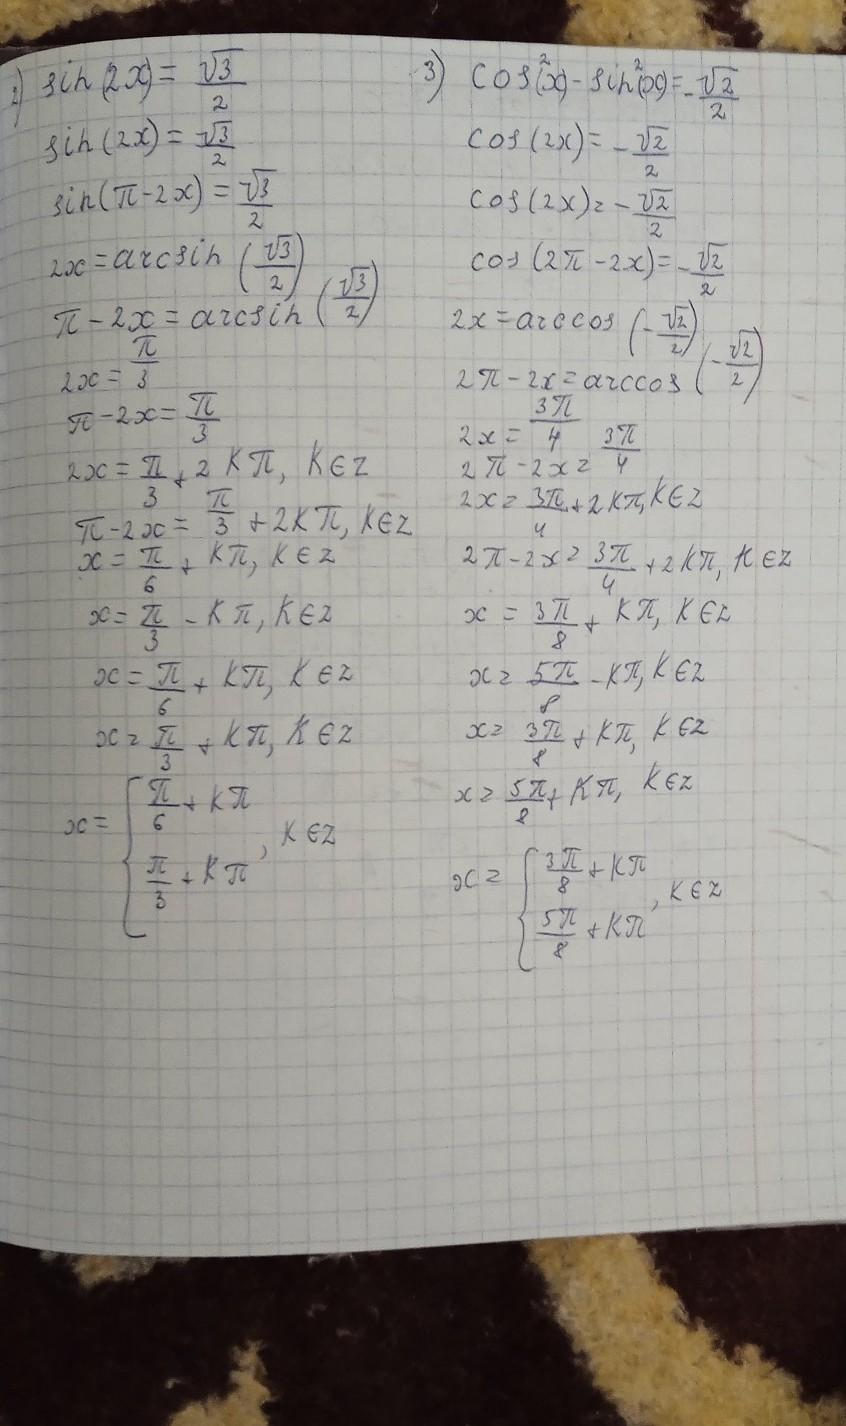 1) sin(2x) = √3/2
sin(2x) = √3/2
sin(π-2x) = √3/2
2x = arcsin (√3/2)
π-2x = arcsin (√3/2)
2x = π/3
π-2x = π/3
2x = π/3 + 2Kπ, K∈Z
π-2x = π/3 + 2Kπ, K∈Z
x = π/6 + Kπ, K∈Z
x = π/3 - Kπ, K∈Z
x = π/6 + Kπ, K∈Z
x = π/3 + Kπ, K∈Z
x = { π/6 + Kπ
π/3 + Kπ , K∈Z
3) cos²(x) - sin²(x) = -√2/2
cos(2x) = -√2/2
cos(2x) = -√2/2
cos(2π-2x) = -√2/2
2x = arccos (-√2/2)
2π-2x = arccos (-√2/2)
2x = 3π/4
2π-2x = 3π/4
2x = 3π/4 + 2Kπ, K∈Z
2π-2x = 3π/4 + 2Kπ, K∈Z
x = 3π/8 + Kπ, K∈Z
x = 5π/8 - Kπ, K∈Z
x = 3π/8 + Kπ, K∈Z
x = 5π/8 + Kπ, K∈Z
x = { 3π/8 + Kπ
5π/8 + Kπ , K∈Z